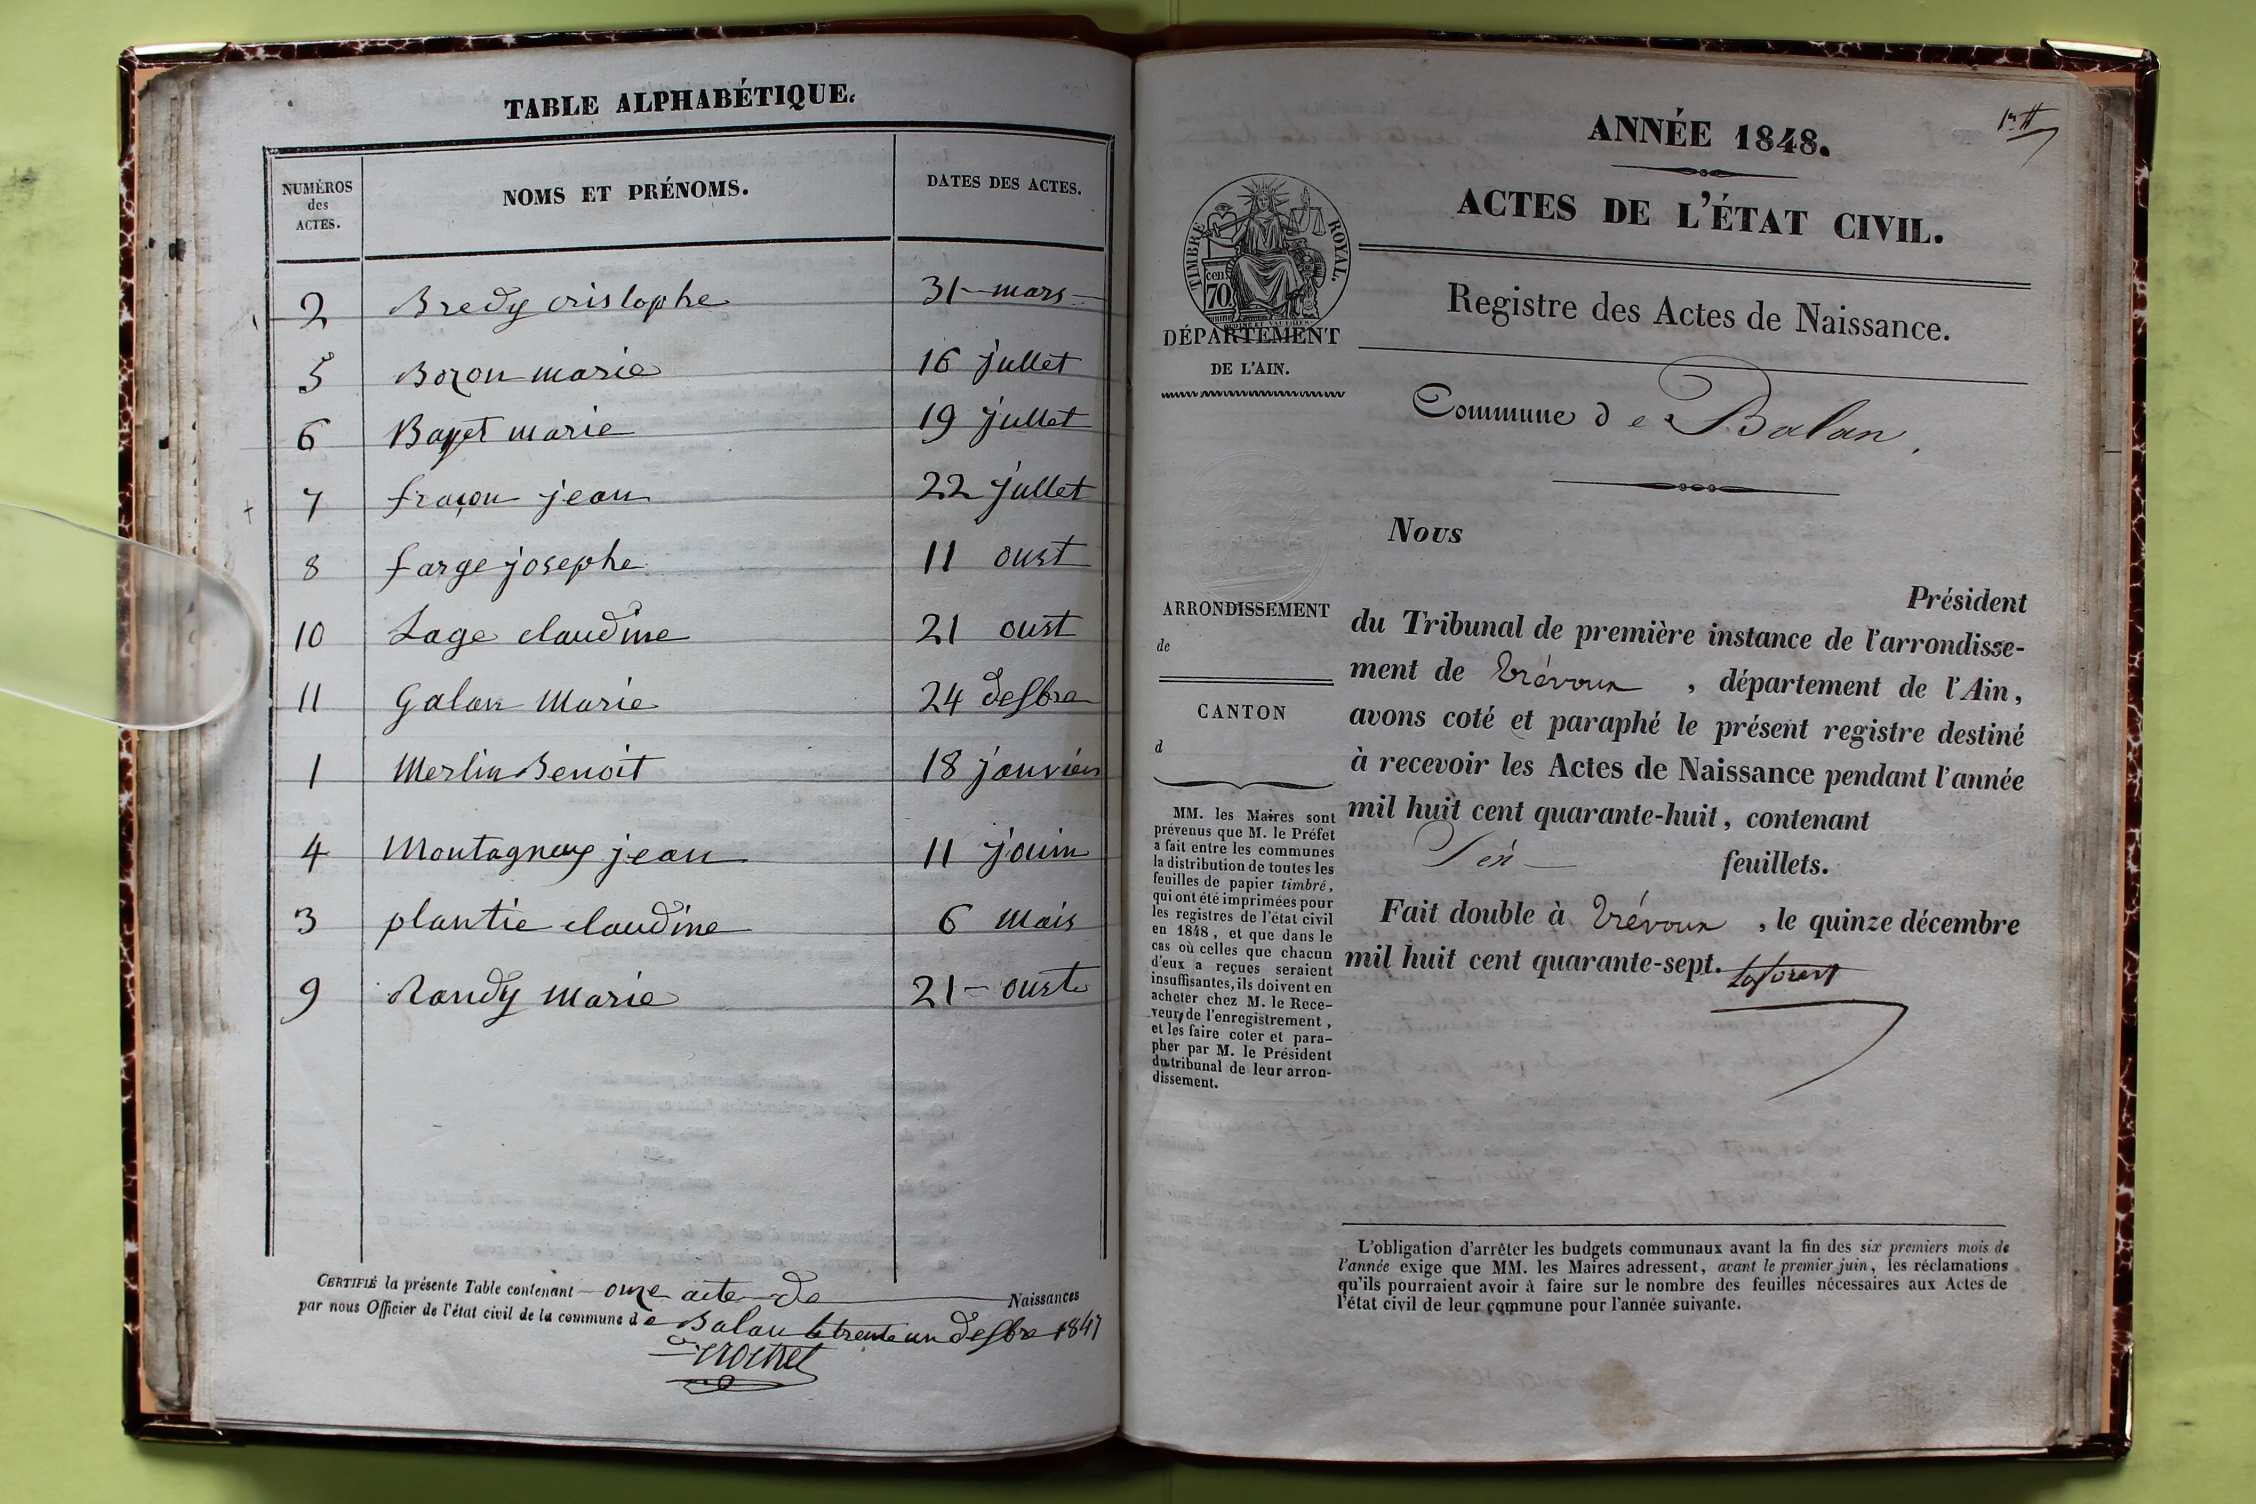 TABLE ALPHABÉTIQUE.
NUMÉROS des ACTES. NOMS ET PRÉNOMS. DATES DES ACTES.
2 Bredy cristophe 31 - mars -
5 Bozon marie 16 jullet
6 Bayet marie 19 jullet
7 fraçon jean 22 jullet
8 farge josephe 11 oust
10 Lage claudine 21 oust
11 Galan Marie 24 desbre
1 Merlin Benoit 18 janvier
4 Montagneux jean 11 jouin
3 plantie claudine 6 mais
9 Randy marie 21 - oust
CERTIFIÉ la présente Table contenant onze acte de Naissances
par nous Officier de l'état civil de la commune de Balan le trente un desbre 1847
ANNÉE 1848.
ACTES DE L'ÉTAT CIVIL.
TIMBRE ROYAL.
70 cen
DÉPARTEMENT
DE L'AIN.
Registre des Actes de Naissance.
Commune de Balan.
Nous
Président
du Tribunal de première instance de l'arrondisse-
ment de Trévoux, département de l'Ain,
avons coté et paraphé le présent registre destiné
à recevoir les Actes de Naissance pendant l'année
mil huit cent quarante-huit, contenant
feuillets.
Fait double à Trévoux, le quinze décembre
mil huit cent quarante-sept.
ARRONDISSEMENT
de
CANTON
d
MM. les Maires sont
prévenus que M. le Préfet
a fait entre les communes
la distribution de toutes les
feuilles de papier timbré,
qui ont été imprimées pour
les registres de l'état civil
en 1848, et que dans le
cas où celles que chacun
d'eux a reçues seraient
insuffisantes, ils doivent en
acheter chez M. le Rece-
veur de l'enregistrement,
et les faire coter et para-
pher par M. le Président
du tribunal de leur arron-
dissement.
L'obligation d'arrêter les budgets communaux avant la fin des six premiers mois de
l'année exige que MM. les Maires adressent, avant le premier juin, les réclamations
qu'ils pourraient avoir à faire sur le nombre des feuilles nécessaires aux Actes de
l'état civil de leur commune pour l'année suivante.